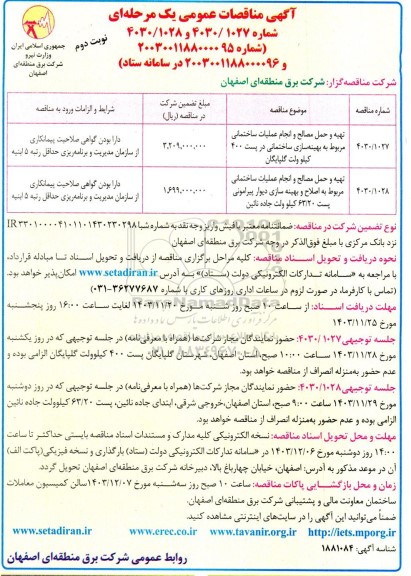 آگهی مناقصات عمومی یک مرحله‌ای
شماره ۴۰۳۰/۱۰۲۷ و ۴۰۳۰/۱۰۲۸
(شماره ۲۰۰۳۰۰۱۱۸۸۰۰۰۰۹۵
و ۲۰۰۳۰۰۱۱۸۸۰۰۰۰۹۶ در سامانه ستاد)
نوبت دوم
جمهوری اسلامی ایران
وزارت نیرو
شرکت برق منطقه‌ای
اصفهان
شرکت مناقصه‌گزار: شرکت برق منطقه‌ای اصفهان
شماره مناقصه
موضوع مناقصه
مبلغ تضمین شرکت در مناقصه (ریال)
شرایط و الزامات ورود به مناقصه
۴۰۳۰/۱۰۲۷
تهیه و حمل مصالح و انجام عملیات ساختمانی مربوط به بهینه‌سازی ساختمانی در پست ۴۰۰ کیلو ولت گلپایگان
۳,۲۰۹,۰۰۰,۰۰۰
دارا بودن گواهی صلاحیت پیمانکاری از سازمان مدیریت و برنامه‌ریزی حداقل رتبه ۵ ابنیه
۴۰۳۰/۱۰۲۸
تهیه و حمل مصالح و انجام عملیات ساختمانی مربوط به اصلاح و بهینه سازی دیوار پیرامونی پست ۶۳/۲۰ کیلو ولت جاده نائین
۱,۶۹۹,۰۰۰,۰۰۰
دارا بودن گواهی صلاحیت پیمانکاری از سازمان مدیریت و برنامه‌ریزی حداقل رتبه ۵ ابنیه
نوع تضمین شرکت در مناقصه: ضمانتنامه معتبر یا فیش واریز وجه نقد به شماره شبا IR ۳۳۰۱۰۰۰۰۴۱۰۱۱۰۱۴۳۰۲۳۰۲۹۸
نزد بانک مرکزی با مبلغ فوق‌الذکر در وجه شرکت برق منطقه‌ای اصفهان
نحوه دریافت و تحویل اسناد مناقصه: کلیه مراحل برگزاری مناقصه از دریافت و تحویل اسناد تا مبادله قرارداد،
با مراجعه به «سامانه تدارکات الکترونیکی دولت (ستاد)» به آدرس www.setadiran.ir امکان‌پذیر خواهد بود.
(تماس با کارفرما، در صورت لزوم در ساعات اداری روزهای کاری با شماره ۳۶۲۷۷۶۸۷-۰۳۱)
مهلت دریافت اسناد: از ساعت ۱۰ صبح روز شنبه مورخ ۱۴۰۳/۱۱/۲۰ لغایت ساعت ۱۶:۰۰ روز پنجشنبه
مورخ ۱۴۰۳/۱۱/۲۵
جلسه توجیهی ۴۰۳۰/۱۰۲۷: حضور نمایندگان مجاز شرکت‌ها (همراه با معرفی‌نامه) در جلسه توجیهی که در روز یکشنبه
۱۴۰۳/۱۱/۲۸ ساعت ۱۰:۰۰ صبح استان اصفهان، شهرستان گلپایگان پست ۴۰۰ کیلوولت گلپایگان الزامی بوده و
عدم حضور به‌منزله انصراف از مناقصه خواهد بود.
جلسه توجیهی ۴۰۳۰/۱۰۲۸: حضور نمایندگان مجاز شرکت‌ها (همراه با معرفی‌نامه) در جلسه توجیهی که در روز دوشنبه
۱۴۰۳/۱۱/۲۹ ساعت ۹:۰۰ صبح، استان اصفهان، خروجی شرقی، ابتدای جاده نائین، پست ۶۳/۲۰ کیلوولت جاده نائین
الزامی بوده و عدم حضور به‌منزله انصراف از مناقصه خواهد بود.
مهلت و محل تحویل اسناد مناقصه: نسخه الکترونیکی کلیه مدارک و مستندات اسناد مناقصه بایستی حداکثر تا ساعت
۱۴:۰۰ روز دوشنبه مورخ ۱۴۰۳/۱۲/۰۶ در سامانه تدارکات الکترونیکی دولت (ستاد) بارگذاری و نسخه فیزیکی (پاکت الف)
آن در موعد مذکور به آدرس: اصفهان، خیابان چهارباغ بالا، دبیرخانه شرکت برق منطقه‌ای اصفهان تحویل گردد.
زمان و محل بازگشایی پاکات مناقصه: ساعت ۱۰ صبح روز سه‌شنبه مورخ ۱۴۰۳/۱۲/۰۷ سالن کمیسیون معاملات
ساختمان معاونت مالی و پشتیبانی شرکت برق منطقه‌ای اصفهان.
ضمناً می‌توانید این آگهی را در سایت‌های اینترنتی مشاهده کنید.
www.setadiran.ir www.erec.co.ir www.tavanir.org.ir http://iets.mporg.ir
شناسه آگهی: ۱۸۸۱۰۸۴
روابط عمومی شرکت برق منطقه‌ای اصفهان